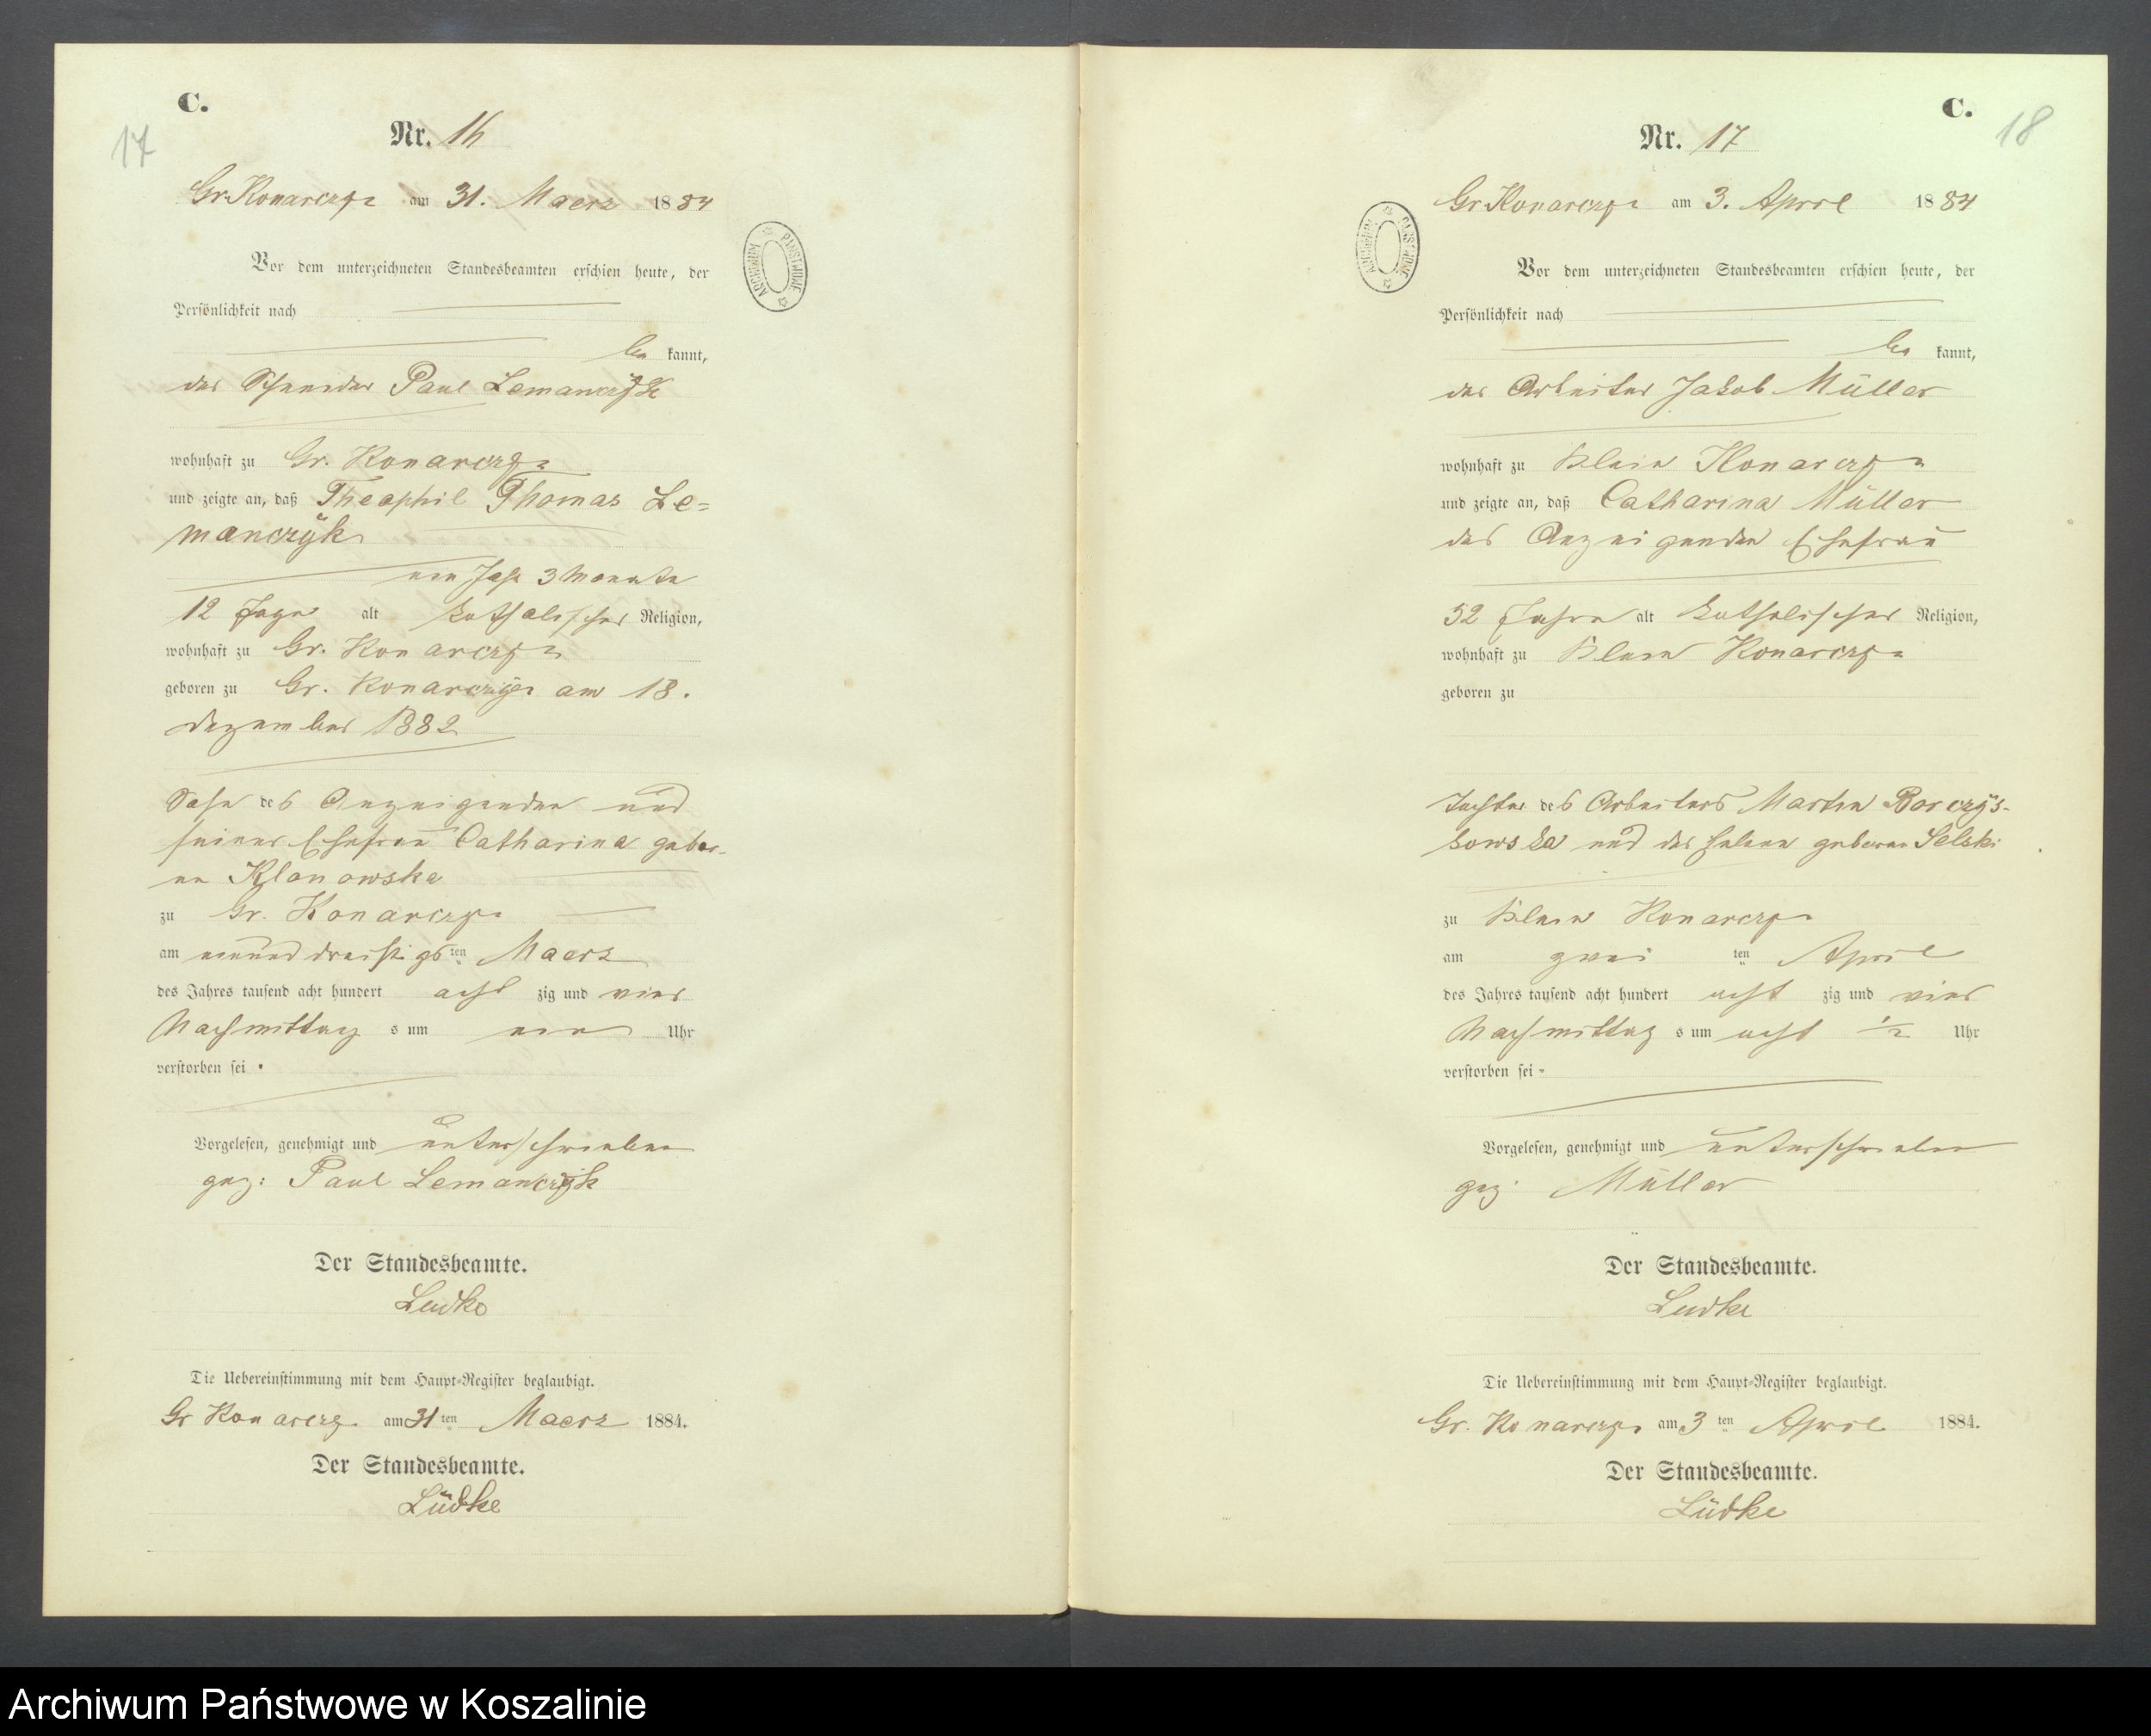 C.
17
Nr. 16
Gr. Konarczyn am 31. Maerz 1884
Vor dem unterzeichneten Standesbeamten erschien heute, der
Persönlichkeit nach
be kannt,
der Schneider Paul Lemanczyk
wohnhaft zu Gr. Konarczyn
und zeigte an, daß Theophil Thomas Le=
manczÿk
ein Jahr 3 Monate
12 Tage alt katholischer Religion,
wohnhaft zu Gr. Konarczyn
geboren zu Gr. Konarczyn am 18.
Dezember 1882
Sohn des Anzeigenden und
seiner Ehefrau Catharina gebor-
en Klonowska
zu Gr. Konarczyn
am einunddreißigsten Maerz
des Jahres tausend acht hundert acht zig und vier
Nachmittag s um ein Uhr
verstorben sei.
Vorgelesen, genehmigt und unterschrieben
gez: Paul Lemanczyk
Der Standesbeamte.
Lüdke
Die Uebereinstimmung mit dem Haupt-Register beglaubigt.
Gr Konarczyn am 31 ten Maerz 1884.
Der Standesbeamte.
Lüdke
C.
18
Nr. 17
Gr Konarczyn am 3. April 1884
Vor dem unterzeichneten Standesbeamten erschien heute, der
Persönlichkeit nach
be kannt,
der Arbeiter Jakob Müller
wohnhaft zu Klein Konarczyn
und zeigte an, daß Catharina Müller
des Anzeigenden Ehefrau
52 Jahre alt katholischer Religion,
wohnhaft zu Klein Konarczyn
geboren zu
Tochter des Arbeiters Martin Borczÿs-
kowska und der Helene geborene Selski
zu Klein Konarczyn
am zwei ten April
des Jahres tausend acht hundert acht zig und vier
Nachmittag s um acht 1/2 Uhr
verstorben sei.
Vorgelesen, genehmigt und unterschrieben
gez. Müller
Der Standesbeamte.
Lüdke
Die Uebereinstimmung mit dem Haupt-Register beglaubigt.
Gr. Konarczyn am 3 ten April 1884.
Der Standesbeamte.
Lüdke
ARCHIWUM PAŃSTWOWE
ARCHIWUM PAŃSTWOWE
Archiwum Państwowe w Koszalinie